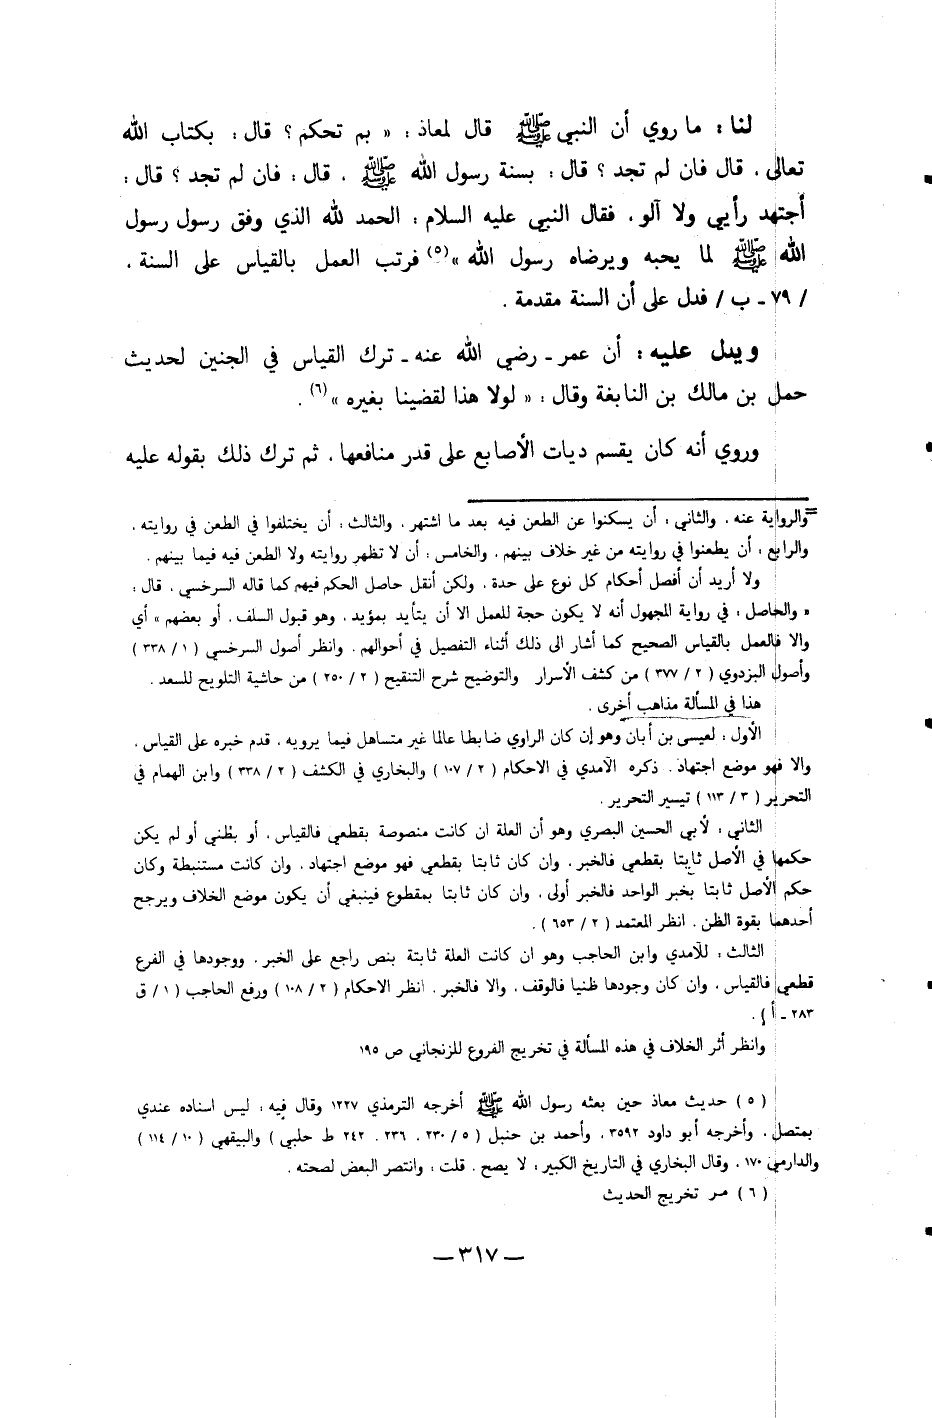 لنا : ما روي أن النبي ﷺ قال لمعاذ : « بم تحكم ؟ قال : بكتاب الله
تعالى . قال فان لم تجد ؟ قال : بسنة رسول الله ﷺ . قال : فان لم تجد ؟ قال :
أجتهد رأيي ولا آلو . فقال النبي عليه السلام : الحمد لله الذي وفق رسول رسول
الله ﷺ لما يحبه ويرضاه رسول الله »(٥) فرتب العمل بالقياس على السنة .
/ ٧٩ ـ ب / فدل على أن السنة مقدمة .
ويدل عليه : أن عمر ـ رضي الله عنه ـ ترك القياس في الجنين لحديث
حمل بن مالك بن النابغة وقال : « لولا هذا لقضينا بغيره »(٦) .
وروي أنه كان يقسم ديات الأصابع على قدر منافعها . ثم ترك ذلك بقوله عليه
= والرواية عنه . والثاني : أن يسكنوا عن الطعن فيه بعد ما اشتهر . والثالث : أن يختلفوا في الطعن في روايته .
والرابع : أن يطعنوا في روايته من غير خلاف بينهم . والخامس : أن لا تظهر روايته ولا الطعن فيه فيما بينهم .
ولا أريد أن أفصل أحكام كل نوع على حدة . ولكن أنقل حاصل الحكم فيهم كما قاله السرخسي . قال :
« والحاصل : في رواية المجهول أنه لا يكون حجة للعمل الا أن يتأيد بمؤيد . وهو قبول السلف . أو بعضهم » أي
والا فالعمل بالقياس الصحيح كما أشار الى ذلك أثناء التفصيل في أحوالهم . وانظر أصول السرخسي ( ١ / ٣٣٨ )
وأصول البزدوي ( ٢ / ٣٧٧ ) من كشف الأسرار والتوضيح شرح التنقيح ( ٢ / ٢٥٠ ) من حاشية التلويح للسعد .
هذا في المسألة مذاهب أخرى .
الأول : لعيسى بن أبان وهو إن كان الراوي ضابطا عالما غير متساهل فيما يرويه . قدم خبره على القياس .
والا فهو موضع اجتهاد . ذكره الآمدي في الاحكام ( ٢ / ١٠٧ ) والبخاري في الكشف ( ٢ / ٣٣٨ ) وابن الهمام في
التحرير ( ٣ / ١١٣ ) تيسير التحرير .
الثاني : لأبي الحسين البصري وهو أن العلة ان كانت منصوصة بقطعي فالقياس . أو بظني أو لم يكن
حكمها في الأصل ثابتا بقطعي فالخبر . وان كان ثابتا بقطعي فهو موضع اجتهاد . وان كانت مستنبطة وكان
حكم الأصل ثابتا بخبر الواحد فالخبر أولى . وان كان ثابتا بمقطوع فينبغي أن يكون موضع الخلاف ويرجح
أحدهما بقوة الظن . انظر المعتمد ( ٢ / ٦٥٣ ) .
الثالث : للآمدي وابن الحاجب وهو ان كانت العلة ثابتة بنص راجع على الخبر . ووجودها في الفرع
قطعي فالقياس . وان كان وجودها ظنيا فالوقف . والا فالخبر . انظر الاحكام ( ٢ / ١٠٨ ) ورفع الحاجب ( ١ / ق
٢٨٣ ـ أ ) .
وانظر أثر الخلاف في هذه المسألة في تخريج الفروع للزنجاني ص ١٩٥
( ٥ ) حديث معاذ حين بعثه رسول الله ﷺ أخرجه الترمذي ١٢٢٧ وقال فيه : ليس اسناده عندي
بمتصل . وأخرجه أبو داود ٣٥٩٢ . وأحمد بن حنبل ( ٥ / ٢٣٠ . ٢٣٦ . ٢٤٢ ط حلبي ) والبيهقي ( ١٠ / ١١٤ )
والدارمي ١٧٠ . وقال البخاري في التاريخ الكبير : لا يصح . قلت : وانتصر البعض لصحته .
( ٦ ) مـر تخريج الحديث
ـ ٣١٧ ـ